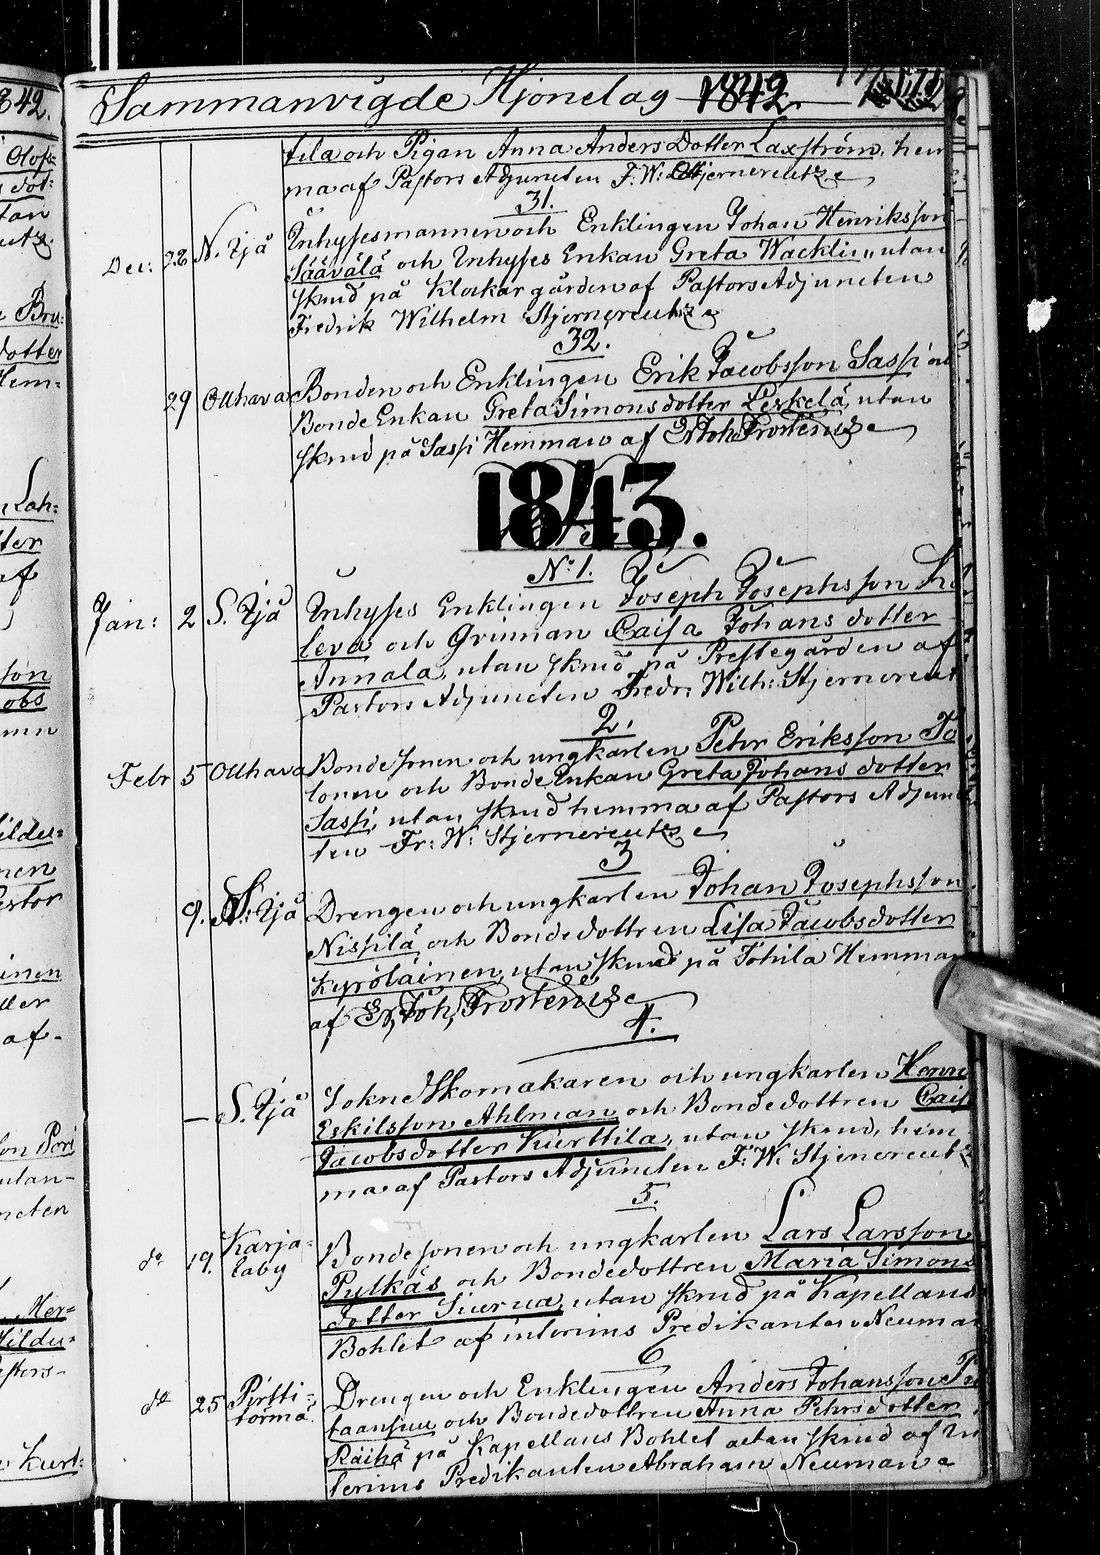 Sammanvigde Hjonelag 1842.
tila och Pigan Anna Anders Dotter Laxström, hem
ma af Pastors Adjuncten F. W. Stjernereutz
31.
Dec: 28 N. Ijå Inhysesmannen och Enklingen Johan Henriksson
Säävälä och Inhyses Enkan Greta Wacklin, utan
skrud på Klockar gården af Pastors Adjuncten
Fredrik Wilhelm Stjernereutz
32.
29 Olthava Bonden och Enklingen Erik Jacobsson Sassi och
Bonde Enkan Greta Simonsdotter Leskelä, utan
skrud på Sassi Hemman af Er Joh Frosterus
1843.
No 1.
Jan: 2 S. Ijå Inhyses Enklingen Joseph Josephsson
leva och Qvinnan Caisa Johans dotter
Annala, utan skrud på Prestegården af
Pastors Adjuncten Fredr: Wilh: Stjernereut
2.
Febr 5 Olthava Bonde sonen och ungkarlen Pehr Eriksson To
lonen och Bonde Enkan Greta Johans dotter
Sassi, utan skrud hemma af Pastors Adjunc
ten Fr: W: Stjernereutz
3
9. S. Ijå Drengen och ungkarlen Johan Josephsson
Nissilä och Bondedottren Lisa Jacobsdotter
Kyröläinen, utan skrud på Tohila Hemman
af Er, Joh, Frosterus
4.
— S. Ijå Sokne Skomakaren och ungkarlen Henr
Eskilsson Ahlman och Bondedottren Cais
Jacobsdotter Kurttila, utan skrud, hem
ma af Pastors Adjuncten F: W: Stjernereutz
5.
do 19. Karja=
laby
Bonde sonen och ungkarlen Lars Larsson
Pulkäs och Bondedottren Maria Simons
Dotter Siurua, utan skrud på Kapellans
Bohlet af interims Predikanten Neuman
6
do 25 Pirtti=
törmä
Drengen och Enklingen Anders Johansson
taansuu och Bondedottren Anna Pehrsdotter
Räihä på Kapellans Bohlet utan skrud af In
terims Predikanten Abraham Neuman